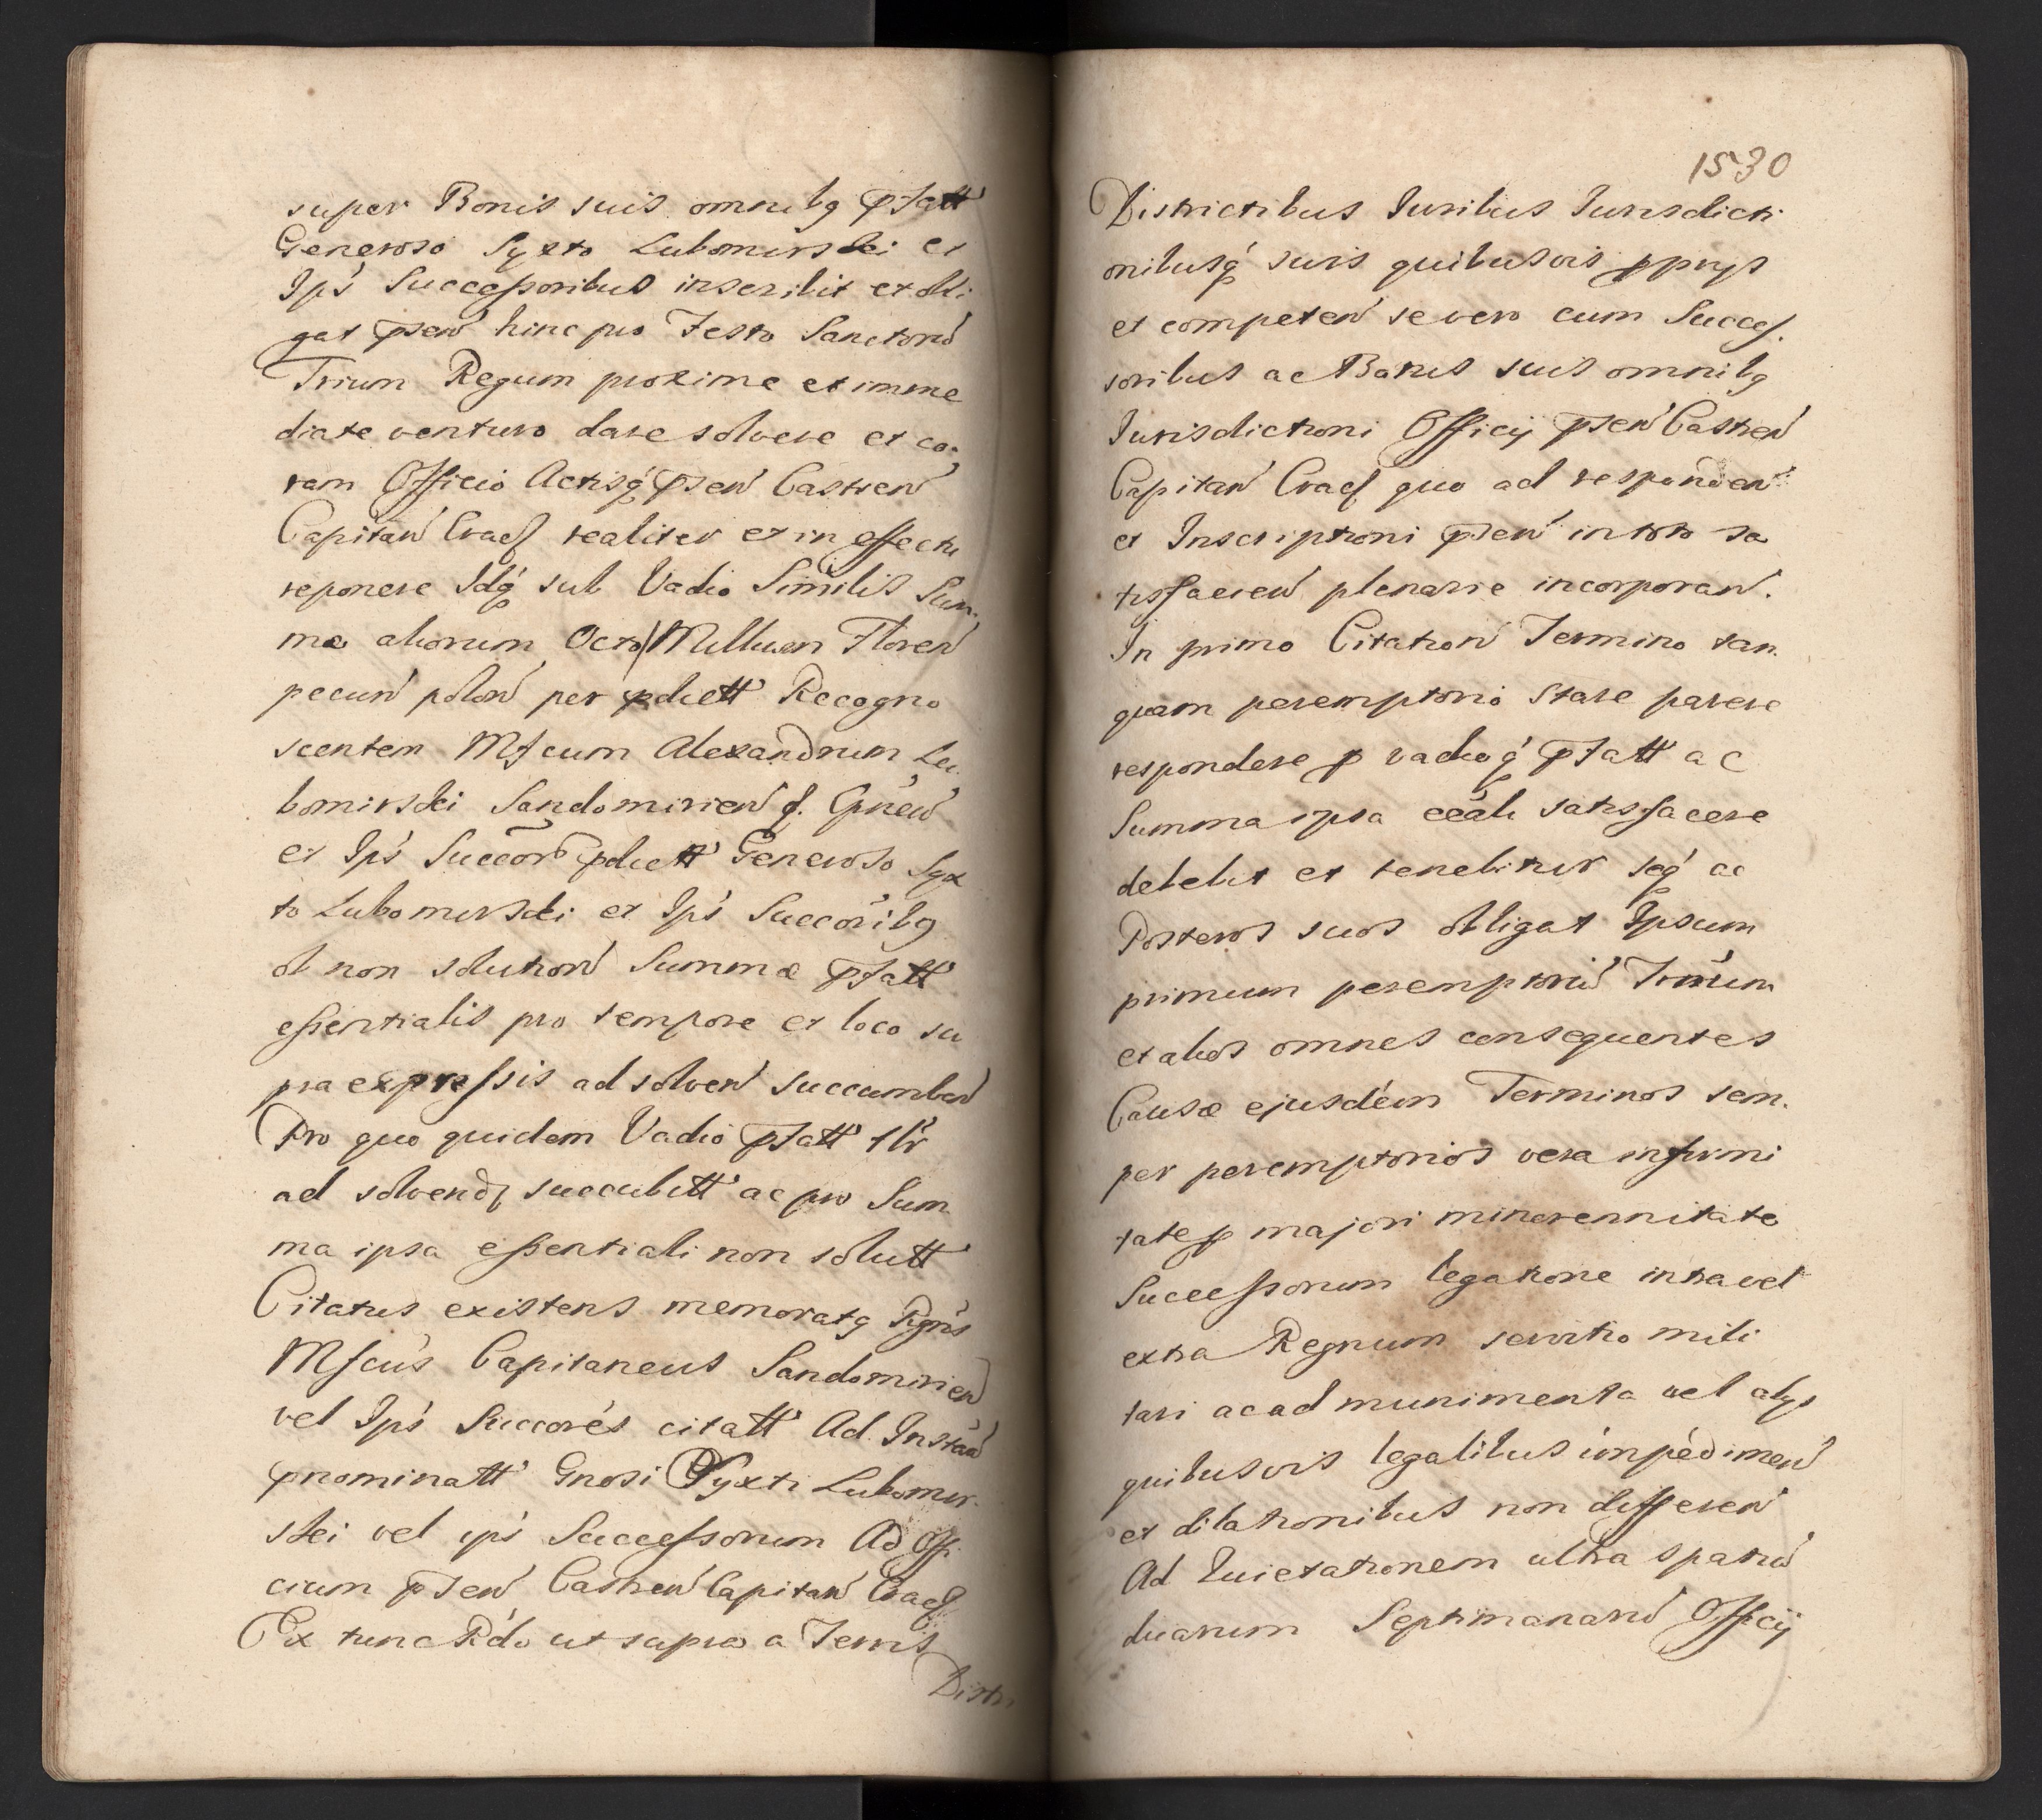 super Bonis suis omnibq pfatt
Generoso Syxto Lubomirski et
Ips Successoribus inscribit et obli
gat psen hinc pro Festo Sanctoru
Trium Regum proxime et imme
diate venturo dare solvere et co
ram Officio Actisq psen Castren
Capitan Crac realiter et in effectu
reponere Idq sub Vadio Similis Sum
ma aliorum Octo Millium Floren
pecun polon per pdictt Recogno
scentem Mfcum Alexandrum Lu
bomirski Sandomirien C. Gnen
et Ips Succor pdictt Generoso Syx
to Lubomirski et Ips Succoribq
ob non solution Summæ pfatt
essentialis pro tempore et loco su
pra expressis ad solven succumben
Pro quo quidem Vadio pfatt tlr
ad solvend succubitt ac pro Sum
ma ipsa essentiali non solutt
Citatus existens memoratq Rgns
Mfcus Capitaneus Sandomirien
vel Ips Succores citatt Ad Instan
pnominatt Gnosi Syxti Lubomir
ski vel ips Successorum Ad Offi
cium psen Castren Capitan Crac
Ex tunc Rdo ut supra a Terris
Distri
1530
Districtibus Iuribus Iurisdicti
onibusq suis quibusvis pprys
et competen se vero cum Succes
soribus ac Bonis suis omnibq
Iurisdictioni Officij psen Castren
Capitan Crac quo ad responden
et Inscriptioni psen in toto sa
tisfacien plenarie incorporan.
In primo Citation Termino tan
quam peremptorio stare parere
respondere p vadioq pfatt ac
Summa ipsa eeali satisfacere
debebit et tenebitur seq ac
Posteros suos obligat Ipsum
primum peremptoriu Trinum
et alios omnes consequentes
Causæ ejusdem Terminos sem
per peremptorios vera infirmi
tate p majori minorennitate
Successorum legatione intra vel
extra Regnum servitio mili
tari ac ad munimenta vel alys
quibusvis legalibus impedimen
et dilationibus non differen
Ad Quietationem ultra spatiu
duarum Septimanaru Officij